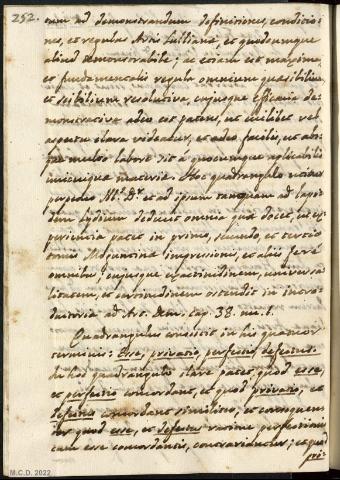 252.
eum ad demonstrandum definitiones, conditio-
nes, et regulas Artis Lullianæ, et quodcumque
aliud demonstrabile; ac etiam est maxima,
et fundamentalis regula omnium quæsibilium,
et scibilium resolutiva, cujusque efficacia de-
monstrativa adeo est patens, ut cuilibet vel
aspectu clara videatur, et adeo facilis, ut abs-
que multo labore sit a quocumque aplicabilis
unicuique materiæ. Hoc quadrangulo utitur
perpetuo Mr. Dr. et ad ipsum tanquam ad lapi-
dem lydium reducit omnia quæ docet, ut ex-
perientia patet in primo, secundo, et tertio
tomis Moguntinæ impressionis, et aliis fere
omnibus, cujusque exactitudinem, universa-
litatem, et certitudinem ostendit in intro-
ductoria ad Art. Dem. cap. 38. nu. 1.
Quadrangulus consistit in his quatuor
terminis: Esse, privatio, perfectio, defectus.
In hoc quadrangulo clare patet, quod esse,
et perfectio concordant, et quod privatio, et
defectus concordant similiter, et consequen-
ter quod esse, et defectus ratione perfectionis
cum esse concordantis, contrariantur; et quod
pri-
M.C.D. 2022